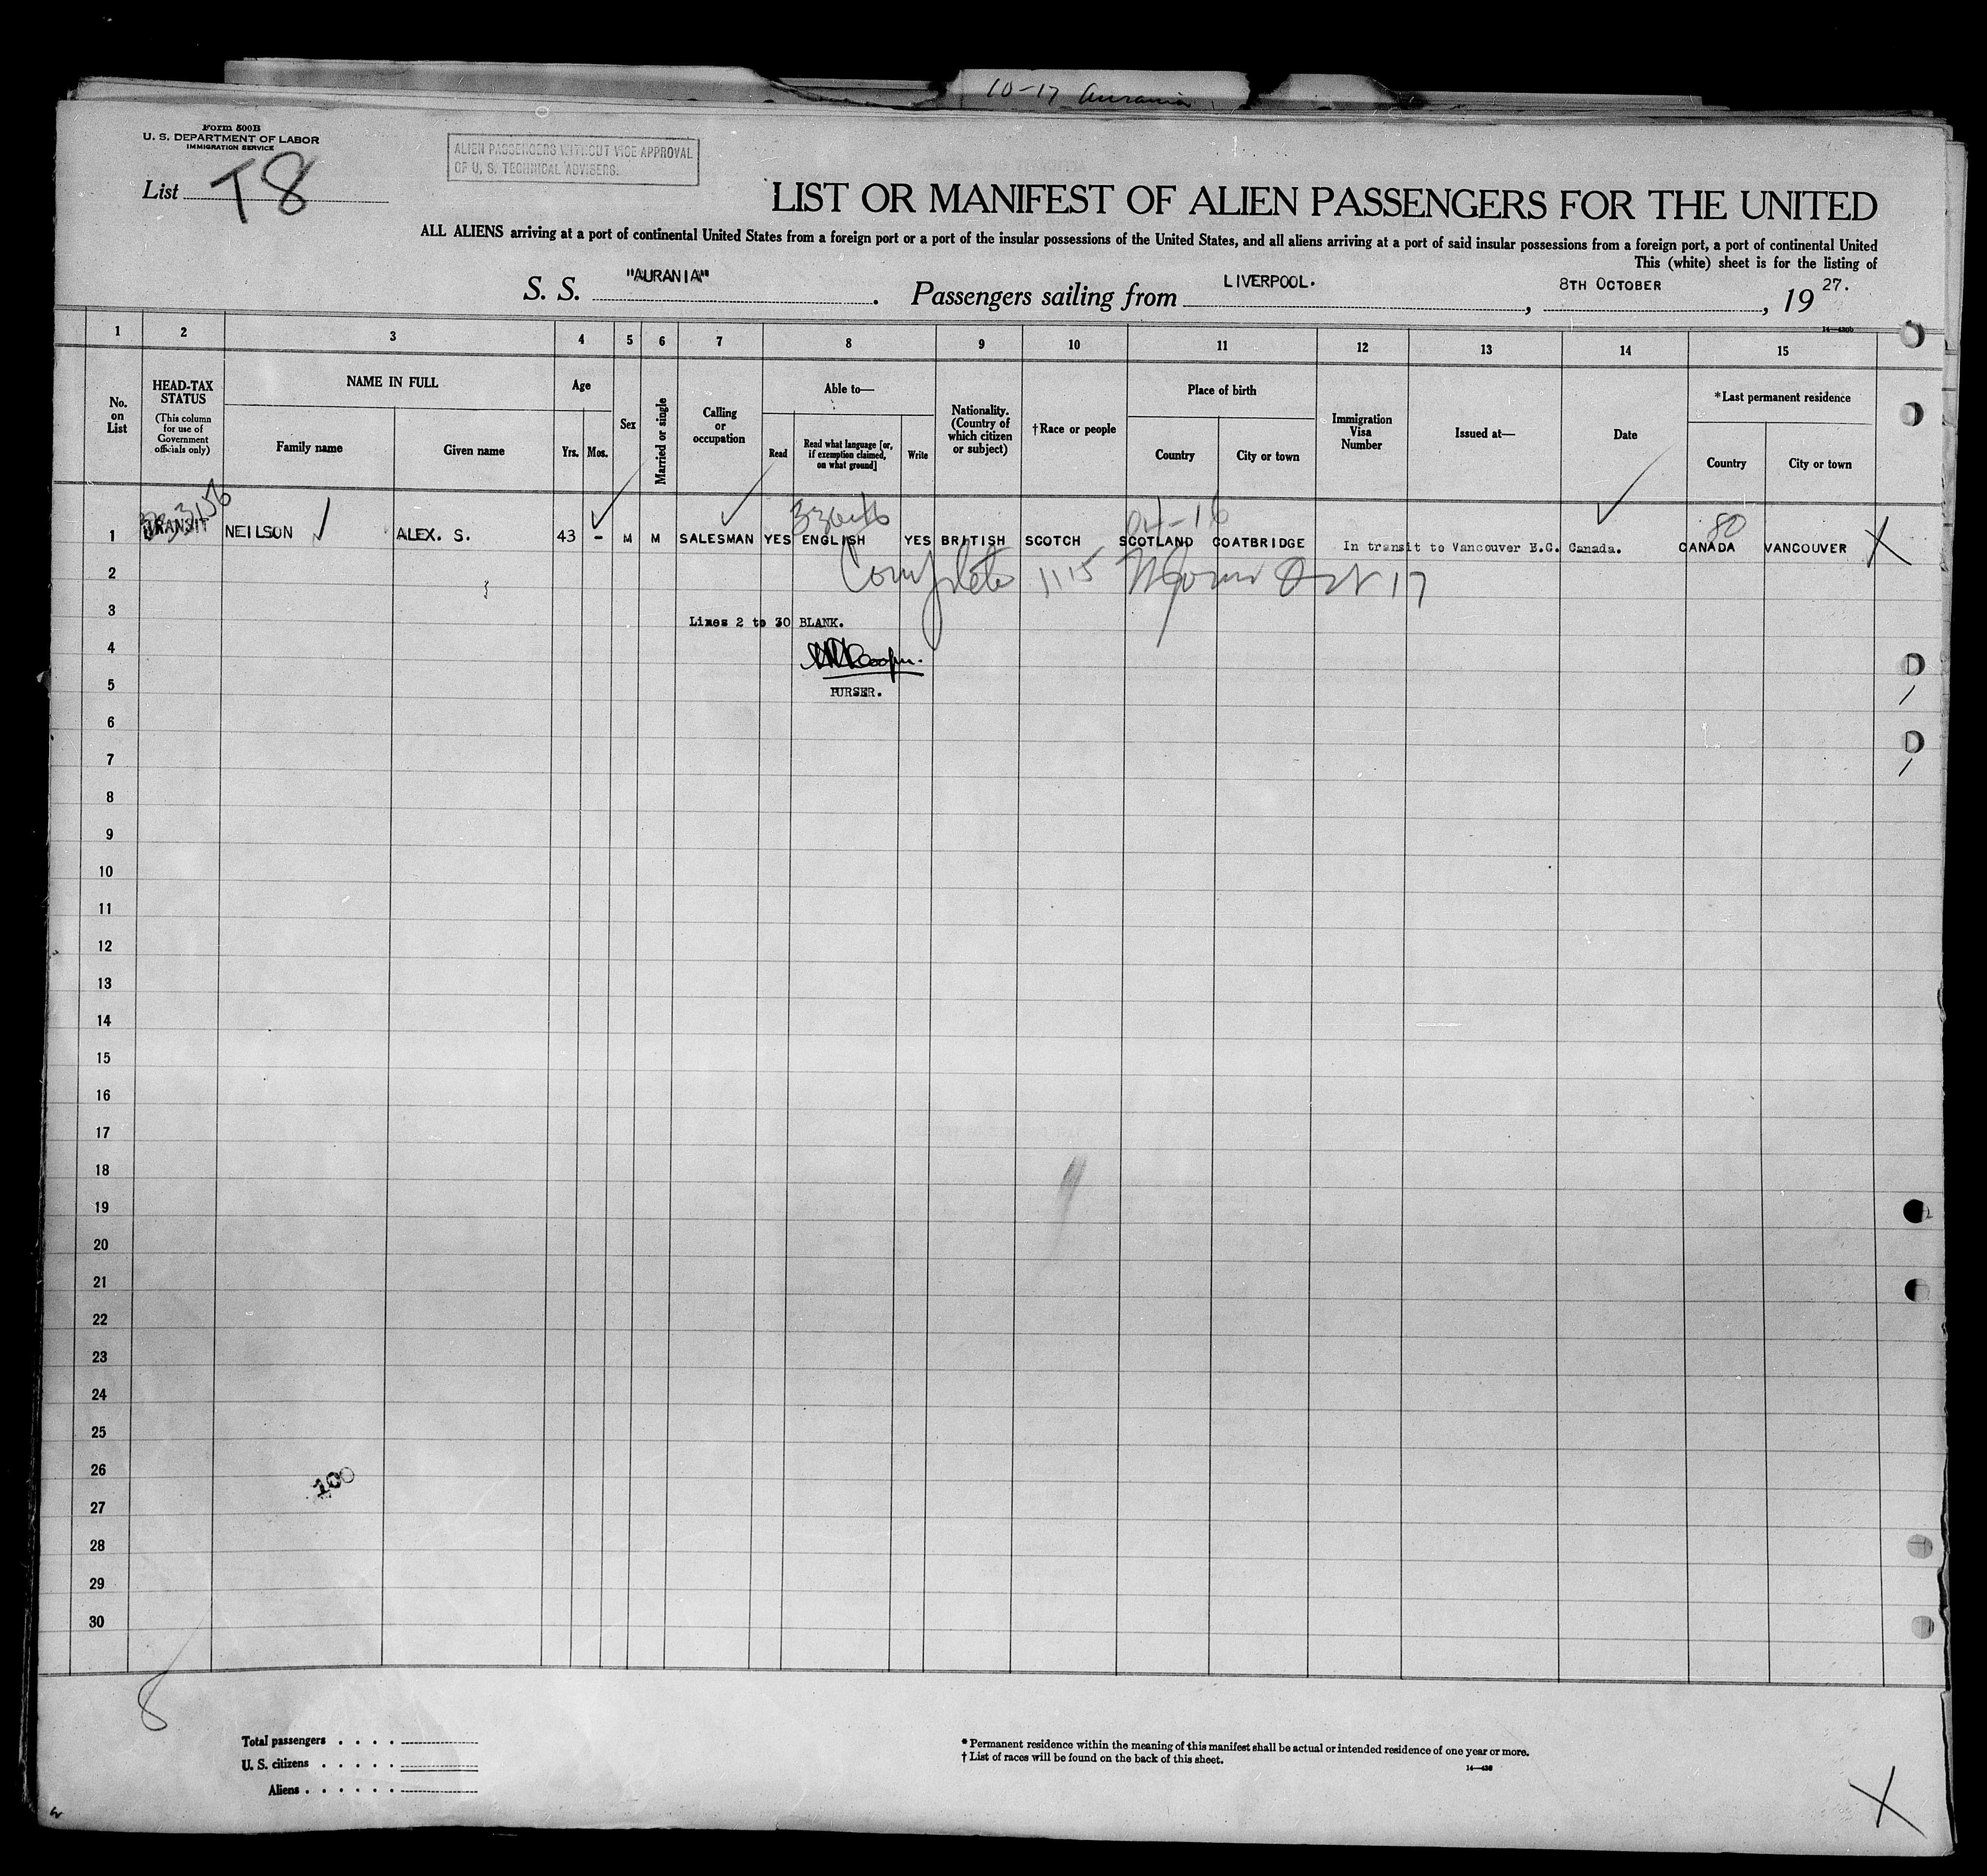 10-17 Aurania
Form 500B
U. S. DEPARTMENT OF LABOR
IMMIGRATION SERVICE
List T8
ALIEN PASSENGERS WITHOUT VICE APPROVAL
OF U. S. TECHNICAL ADVISERS.
LIST OR MANIFEST OF ALIEN PASSENGERS FOR THE UNITED
ALL ALIENS arriving at a port of continental United States from a foreign port or a port of the insular possessions of the United States, and all aliens arriving at a port of said insular possessions from a foreign port, a port of continental United
This (white) sheet is for the listing of
S. S. "AURANIA". Passengers sailing from LIVERPOOL., 8TH OCTOBER, 19 27.
14—430b
1 2 3 4 5 6 7 8 9 10 11 12 13 14 15
No. on List
HEAD-TAX STATUS
(This column for use of Government officials only)
NAME IN FULL
Family name
Given name
Age
Yrs.
Mos.
Sex
Married or single
Calling or occupation
Able to—
Read
Read what language [or, if exemption claimed, on what ground]
Write
Nationality. (Country of which citizen or subject)
†Race or people
Place of birth
Country
City or town
Immigration Visa Number
Issued at—
Date
*Last permanent residence
Country
City or town
80
1 TRANSIT NEILSON ALEX. S. 43 - M M SALESMAN YES ENGLISH YES BRITISH SCOTCH SCOTLAND COATBRIDGE In transit to Vancouver B.C. Canada. CANADA VANCOUVER X
2 Complete 1115 Oct 17
3 Lines 2 to 30 BLANK.
4
5 PURSER.
6
7
8
9
10
11
12
13
14
15
16
17
18
19
20
21
22
23
24
25
26
100
27
28
29
30
8
Total passengers . . . .
U. S. citizens . . . . .
Aliens . . . . . .
* Permanent residence within the meaning of this manifest shall be actual or intended residence of one year or more.
† List of races will be found on the back of this sheet.
14—430
X